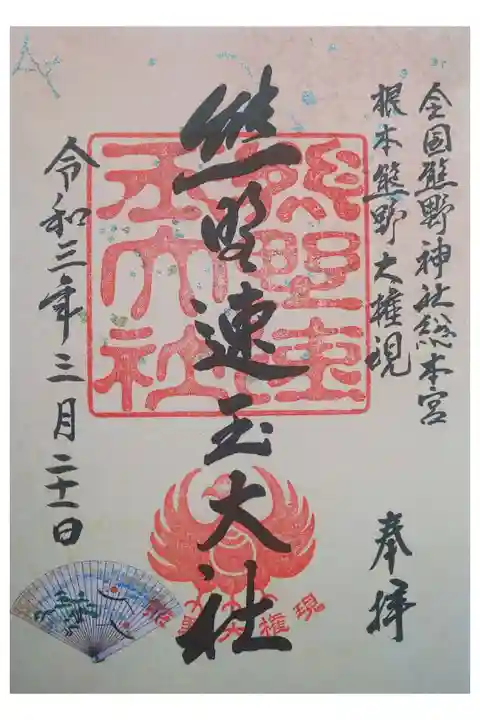 全国熊野神社総本宮
根本熊野大権現
奉拝
熊野速玉大社
熊野速
玉大社
令和三年三月二十一日
熊野大権現